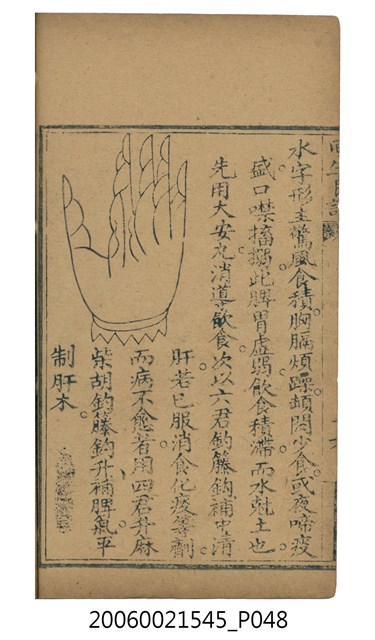 水字形主驚風食積胸膈煩躁頭悶少食或夜啼痰
盛口噤搐搦此脾胃虛弱飲食積滯而水尅土也
先用大安丸消導飲食次以六君鈎籐鈎補中清
肝若已服消食化痰等劑
而病不愈者用四君升麻
柴胡鈎籐鈎升補脾氣平
制肝木
20060021545_P048